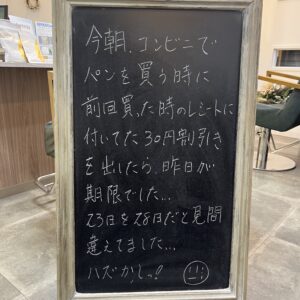 今朝、コンビニで
ペンを買う時に
前回買った時のレシートに
付いてた30円割引き
を出したら、昨日が
期限でした...
23日を28日だと見間
違えてました...
ハズかしっ!